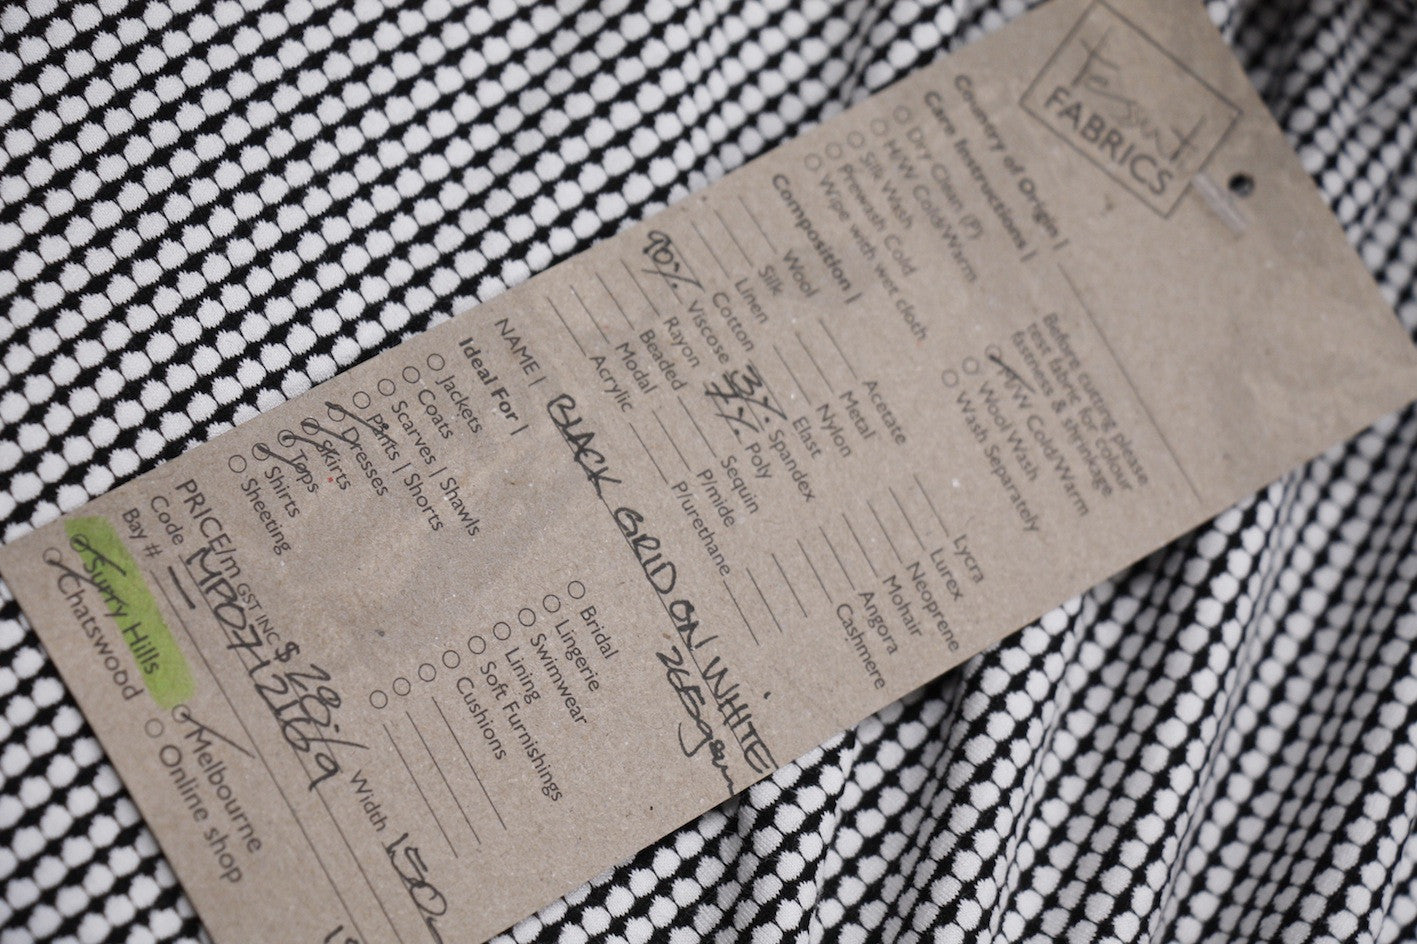 Tessuti
FABRICS
Country of Origin |
Care Instructions |
Dry Clean (P)
H/W Cold/Warm
Silk Wash
Prewash Cold
Wipe with wet cloth
M/W Cold/Warm
Wool Wash
Wash Separately
Before cutting please
test fabric for colour
fastness & shrinkage
Composition |
Wool
Silk
Linen
Cotton
90% Viscose
Rayon
Beaded
Modal
Acrylic
Acetate
Metal
Nylon
Elast
3% Spandex
7% Poly
Sequin
P/mide
P/urethane
Lycra
Lurex
Neoprene
Mohair
Angora
Cashmere
NAME | BLACK GRID ON WHITE
265gsm
Ideal For |
Jackets
Coats
Scarves | Shawls
Pants | Shorts
Dresses
Skirts
Tops
Shirts
Sheeting
Bridal
Lingerie
Swimwear
Lining
Soft Furnishings
Cushions
PRICE/m GST INC $ Width 150
Code
Bay # —
Surry Hills
Melbourne
Chatswood
Online shop